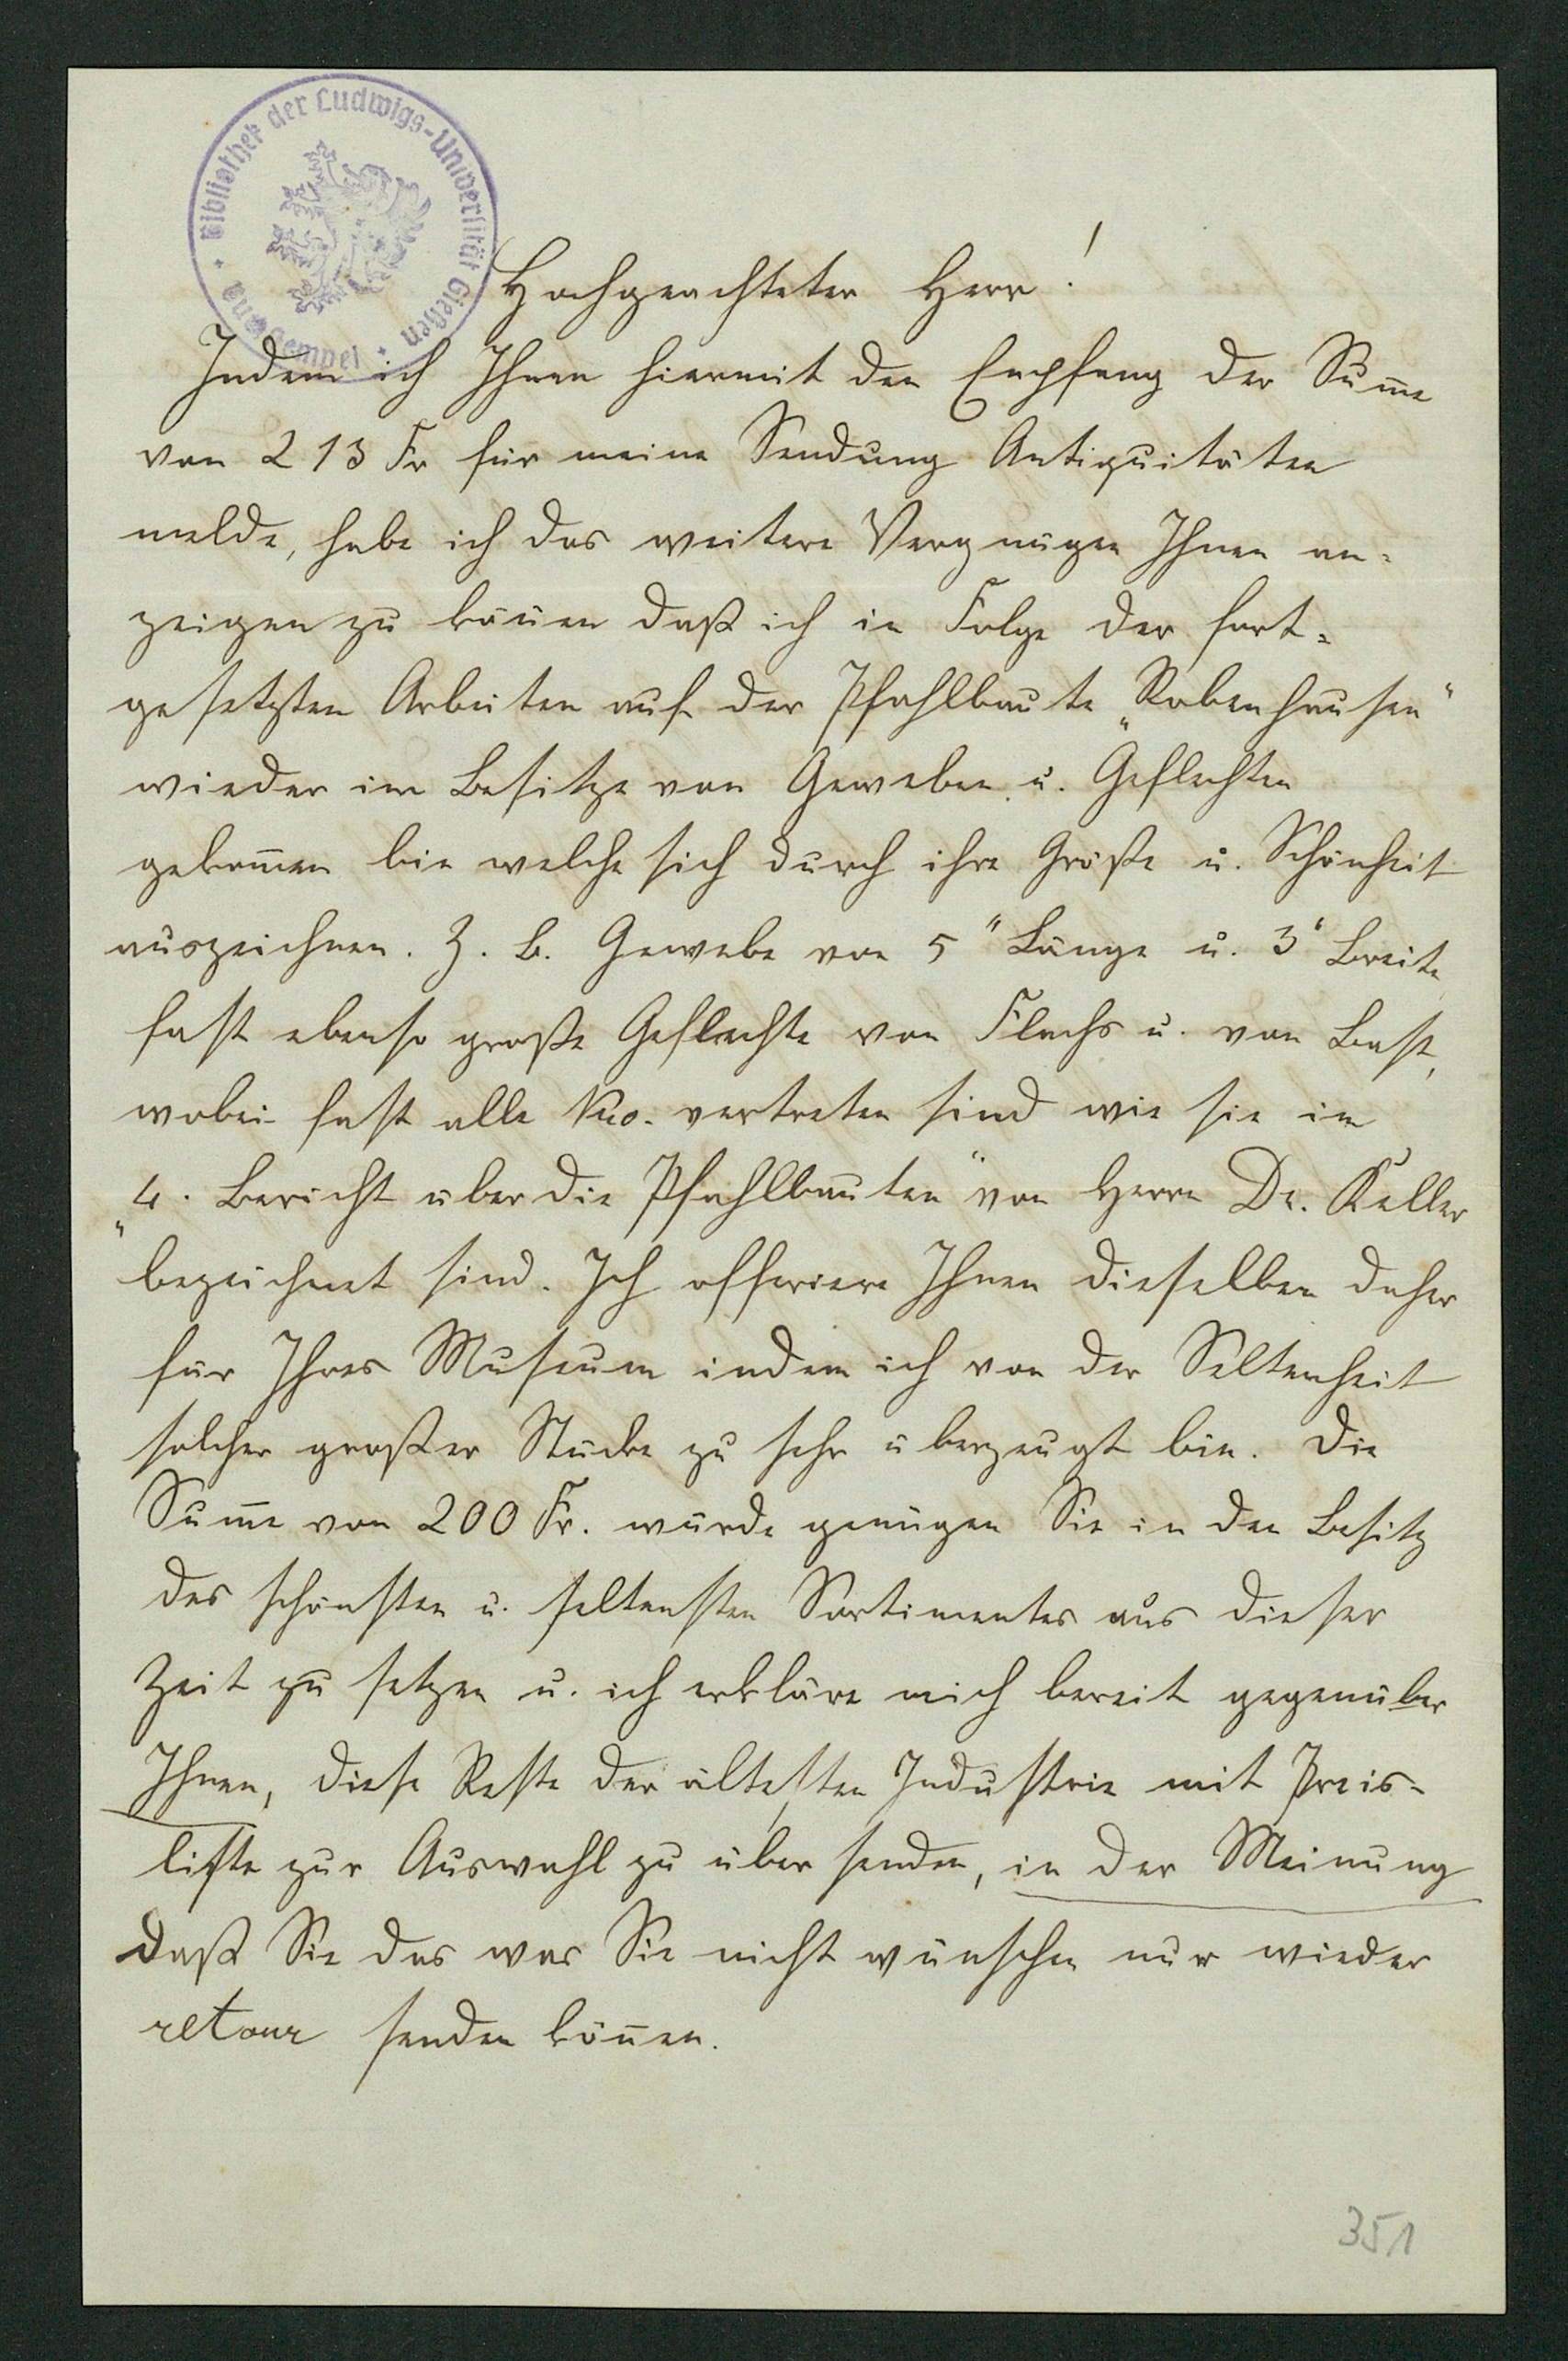 Bibliothek der Ludwigs-Universität Gießen
Hochgeachteter Herr!
Indem ich Ihnen hiermit den Empfang der Sum̅e
von 213 Fr für meine Sendung Antiquitäten
melde, habe ich das weitere Vergnügen Ihnen an-
zeigen zu kön̅en daß ich in Folge der fort-
gesetzten Arbeiten auf der Pfahlbaute „Robenhausen“
wieder im Besitze von Geweben u. Geflechten
gekom̅en bin welche sich durch ihre Größe u. Schönheit
auszeichnen. Z. B. Gewebe von 5" Länge u. 3" Breite
fast ebenso große Geflechte von Flachs u. von Bast,
wobei fast alle Nro. vertreten sind wie sie im
„4. Bericht über die Pfahlbauten“ von Herrn Dr. Keller
bezeichnet sind. Ich offeriere Ihnen dieselben daher
für Ihres Museum indem ich von der Seltenheit
solcher großer Stücke zu sehr überzeugt bin. Die
Sum̅e von 200 Fr. würde genügen Sie in den Besitz
des schönsten u. seltensten Sortimentes aus dieser
Zeit zu setzen u. ich erkläre mich bereit gegenüber
Ihnen, diese Reste der ältesten Industrie mit Preis-
liste zur Auswahl zu über senden, in der Meinung
daß Sie das was Sie nicht wünschen nur wieder
retour senden kön̅en.
351